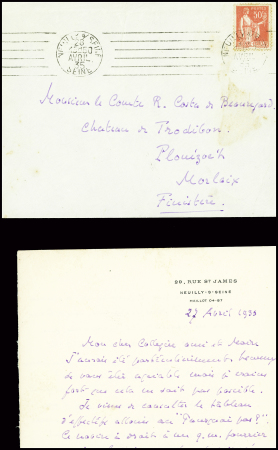 NEUILLY S/ SEINE
AVRIL
SEINE
50
Monsieur le Comte R. Costa de Beauregard
Chateau de Trodibon
Plouézoc'h
Morlaix
Finistère
29, RUE ST JAMES
NEUILLY-S-SEINE
MAILLOT 04-97
27 Avril 193
Mon cher Collègue ami et Maire
J'aurais été particulièrement heureux
de vous être agréable mais je crains
fort que cela ne soit pas possible.
Je viens de consulter le tableau
d'effectifs allouée au "Pourquoi pas?"
Ce navire a droit à un q.m. fourrier